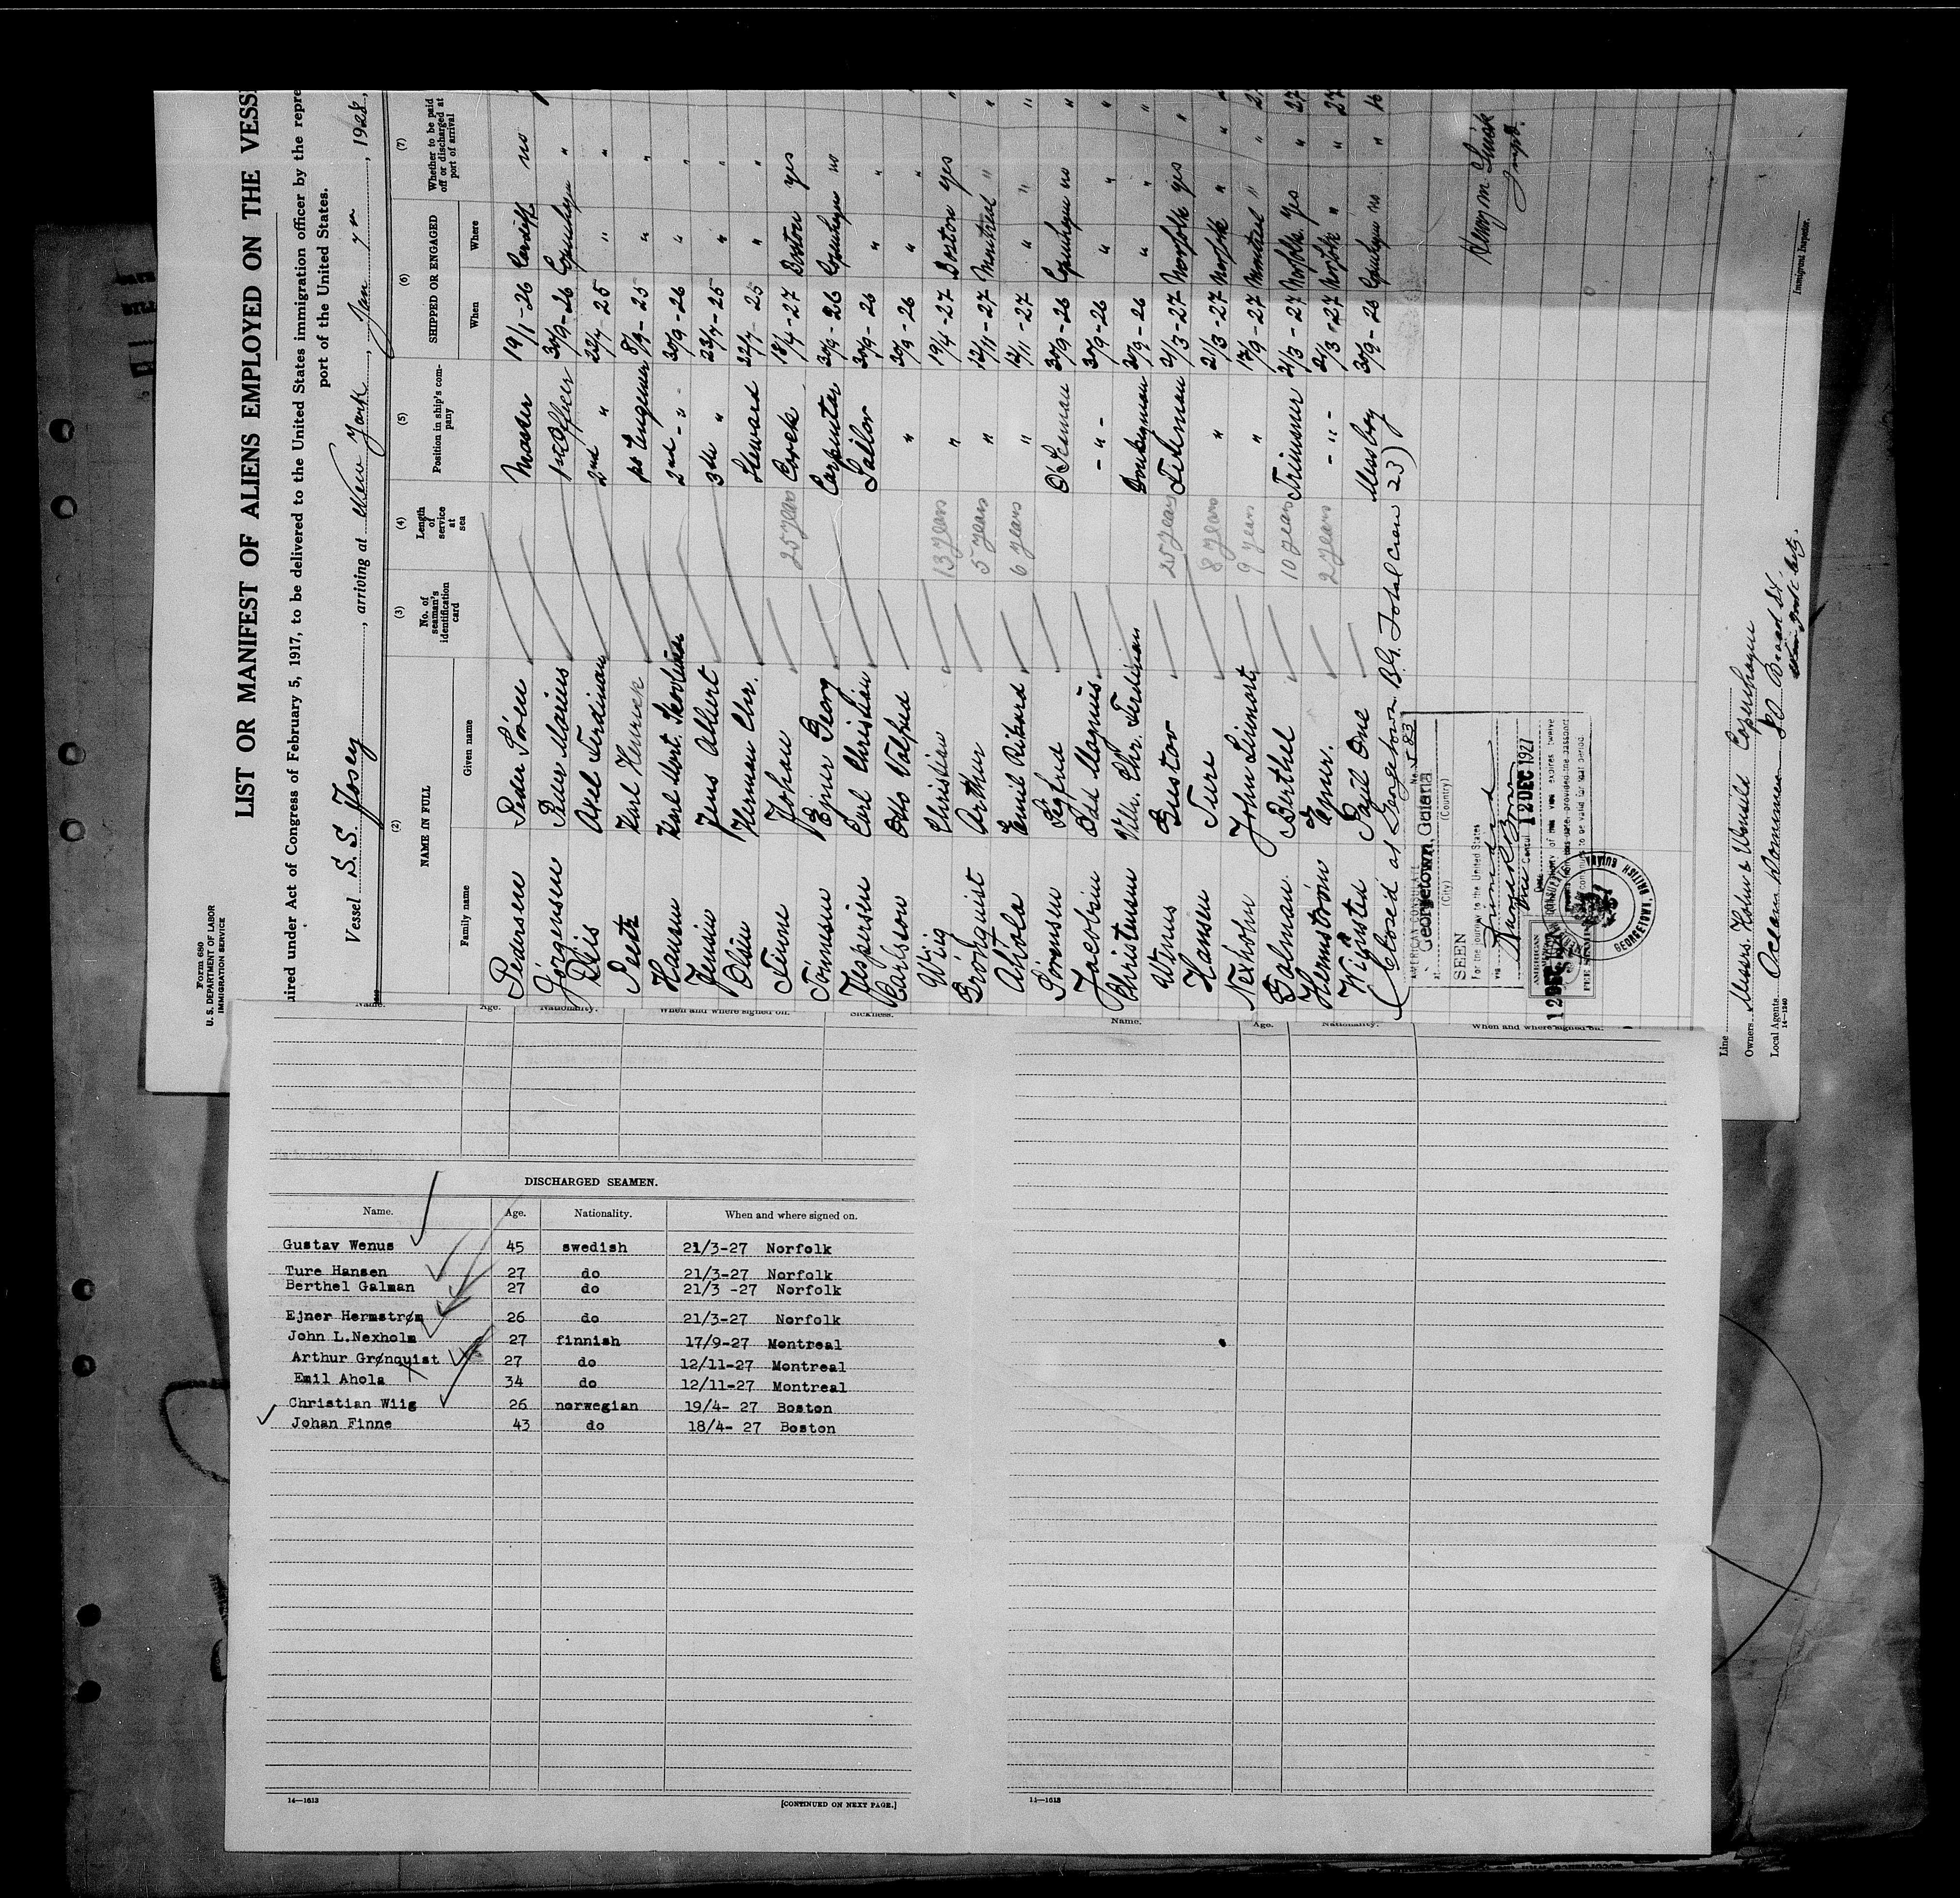 Form 680
U. S. DEPARTMENT OF LABOR
IMMIGRATION SERVICE
LIST OR MANIFEST OF ALIENS EMPLOYED ON THE VESS
uired under Act of Congress of February 5, 1917, to be delivered to the United States immigration officer by the repre
port of the United States.
Vessel S.S. Josey, arriving at New York, Jan 7th, 1928,
(2) (3) (4) (5) (6) (7)
NAME IN FULL No. of seaman's identification card Length of service at sea Position in ship's company SHIPPED OR ENGAGED Whether to be paid off or discharged at port of arrival
Family name Given name When Where
Pedersen Peder Sören Master 19/1-26 Cardiff no
Jörgensen Marius 1st Officer 30/9-26 "
Axel Ferdinan 2nd " 22/7-25 " "
Peetz Karl Henrick 1st Engineer 8/9-25 " "
Hansen Karl 2nd -"- 30/9-26 " "
Jensen Jens Albert 3th " 23/7-25 " "
Olsen Herman Chr. Steward 22/7-25 " "
Finne Johan 25 years Cook 18/4-27 Boston yes
Tönnesen Ejner Georg Carpenter 30/9-26 no
Jespersen Carl Christian Sailor 30/9-26 " "
Carlsson Otto Valfred " 30/9-26 " "
Wiig Christian 13 years " 19/4-27 Boston yes
Grönquist Arthur 5 years " 12/11-27 Montreal "
Ahola Emil Rikard 6 years " 12/11-27 " "
Sörensen Sigfred O'Seaman 30/9-26 no
Jacobsen Odd Magnus -"- 30/9-26 " "
Christensen Vilh. Chr. Ferdinan Donkeyman 30/9-26 " "
Wenus Gustav 25 years Fireman 21/3-27 Norfolk yes
Hansen Ture 8 years " 21/3-27 Norfolk "
Nexholm John Linnart 9 years " 17/9-27 Montreal "
Galman Berthel 10 years Trimmer 21/3-27 Norfolk yes
Hermström Ejnar. 2 years -"- 21/3-27 Norfolk "
Poul One Messboy 30/9-26 no
(Closed at Georgetown B.G. Total crew 23)
AMERICAN CONSULATE No. 583
at Georgetown, Guiana
(City) (Country)
SEEN
For the journey to the United States
via Trinidad
Vice Consul 12 DEC 1927
GEORGETOWN, BRITISH GUIANA
Line
Owners Messrs. Holm & Wonsild Copenhagen
Local Agents Ocean Dominion 80 Broad St.
14—1240
Immigrant Inspector.
Name. Age. Nationality. When and where signed on. Sickness.
DISCHARGED SEAMEN.
Name. Age. Nationality. When and where signed on.
Gustav Wenus 45 swedish 21/3-27 Norfolk
Ture Hansen 27 do 21/3-27 Norfolk
Berthel Galman 27 do 21/3 -27 Norfolk
Ejner Hermstrøm 26 do 21/3-27 Norfolk
John L.Nexholm 27 finnish 17/9-27 Montreal
Arthur Grønquist 27 do 12/11-27 Montreal
Emil Ahola 34 do 12/11-27 Montreal
Christian Wiig 26 norwegian 19/4- 27 Boston
Johan Finne 43 do 18/4- 27 Boston
14—1613 [CONTINUED ON NEXT PAGE.]
Name. Age. Nationality. When and where signed on.
14—1613